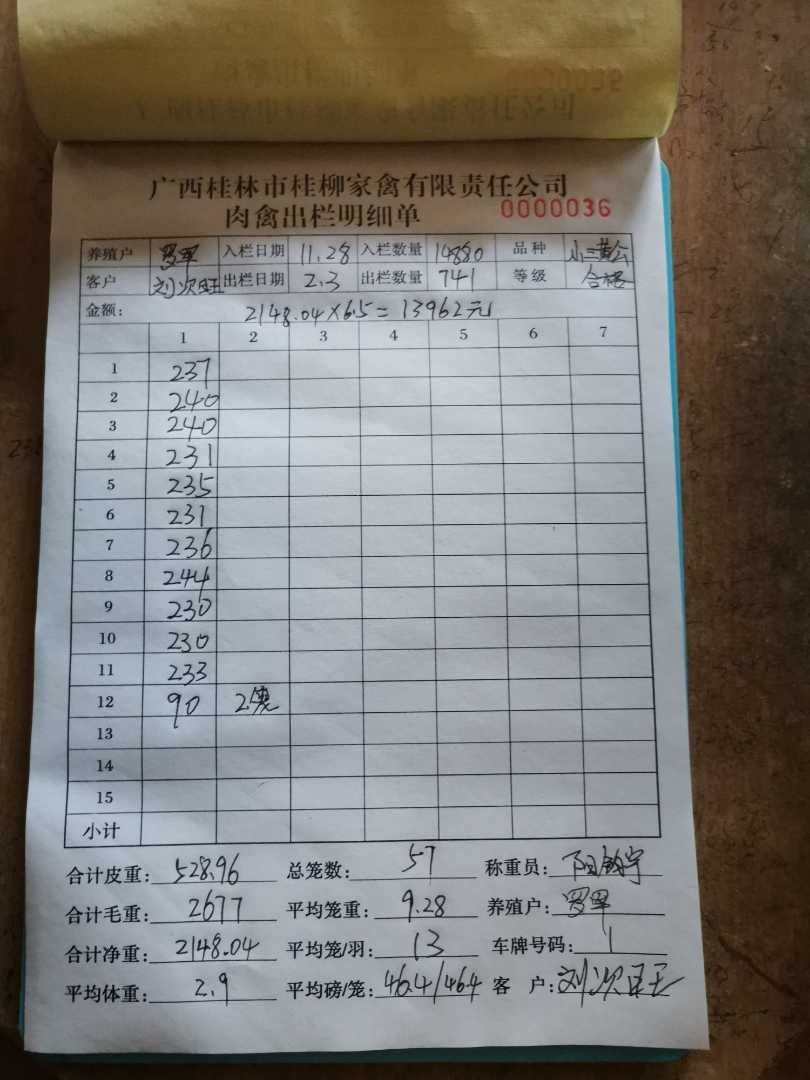 广西桂林市桂柳家禽有限责任公司
肉禽出栏明细单 0000036
养殖户 罗军 入栏日期 11.28 入栏数量 14880 品种 小三黄公
客户 刘次旺 出栏日期 2.3 出栏数量 741 等级 合格
金额: 2148.04×6.5=13962元
1 2 3 4 5 6 7
1 237
2 240
3 240
4 231
5 235
6 231
7 236
8 244
9 230
10 230
11 233
12 90 2笼
13
14
15
小计
合计皮重: 528.96 总笼数: 57 称重员:
合计毛重: 2677 平均笼重: 9.28 养殖户: 罗军
合计净重: 2148.04 平均笼/羽: 13 车牌号码: 1
平均体重: 2.9 平均磅/笼: 46.4/46.4 客户: 刘次旺